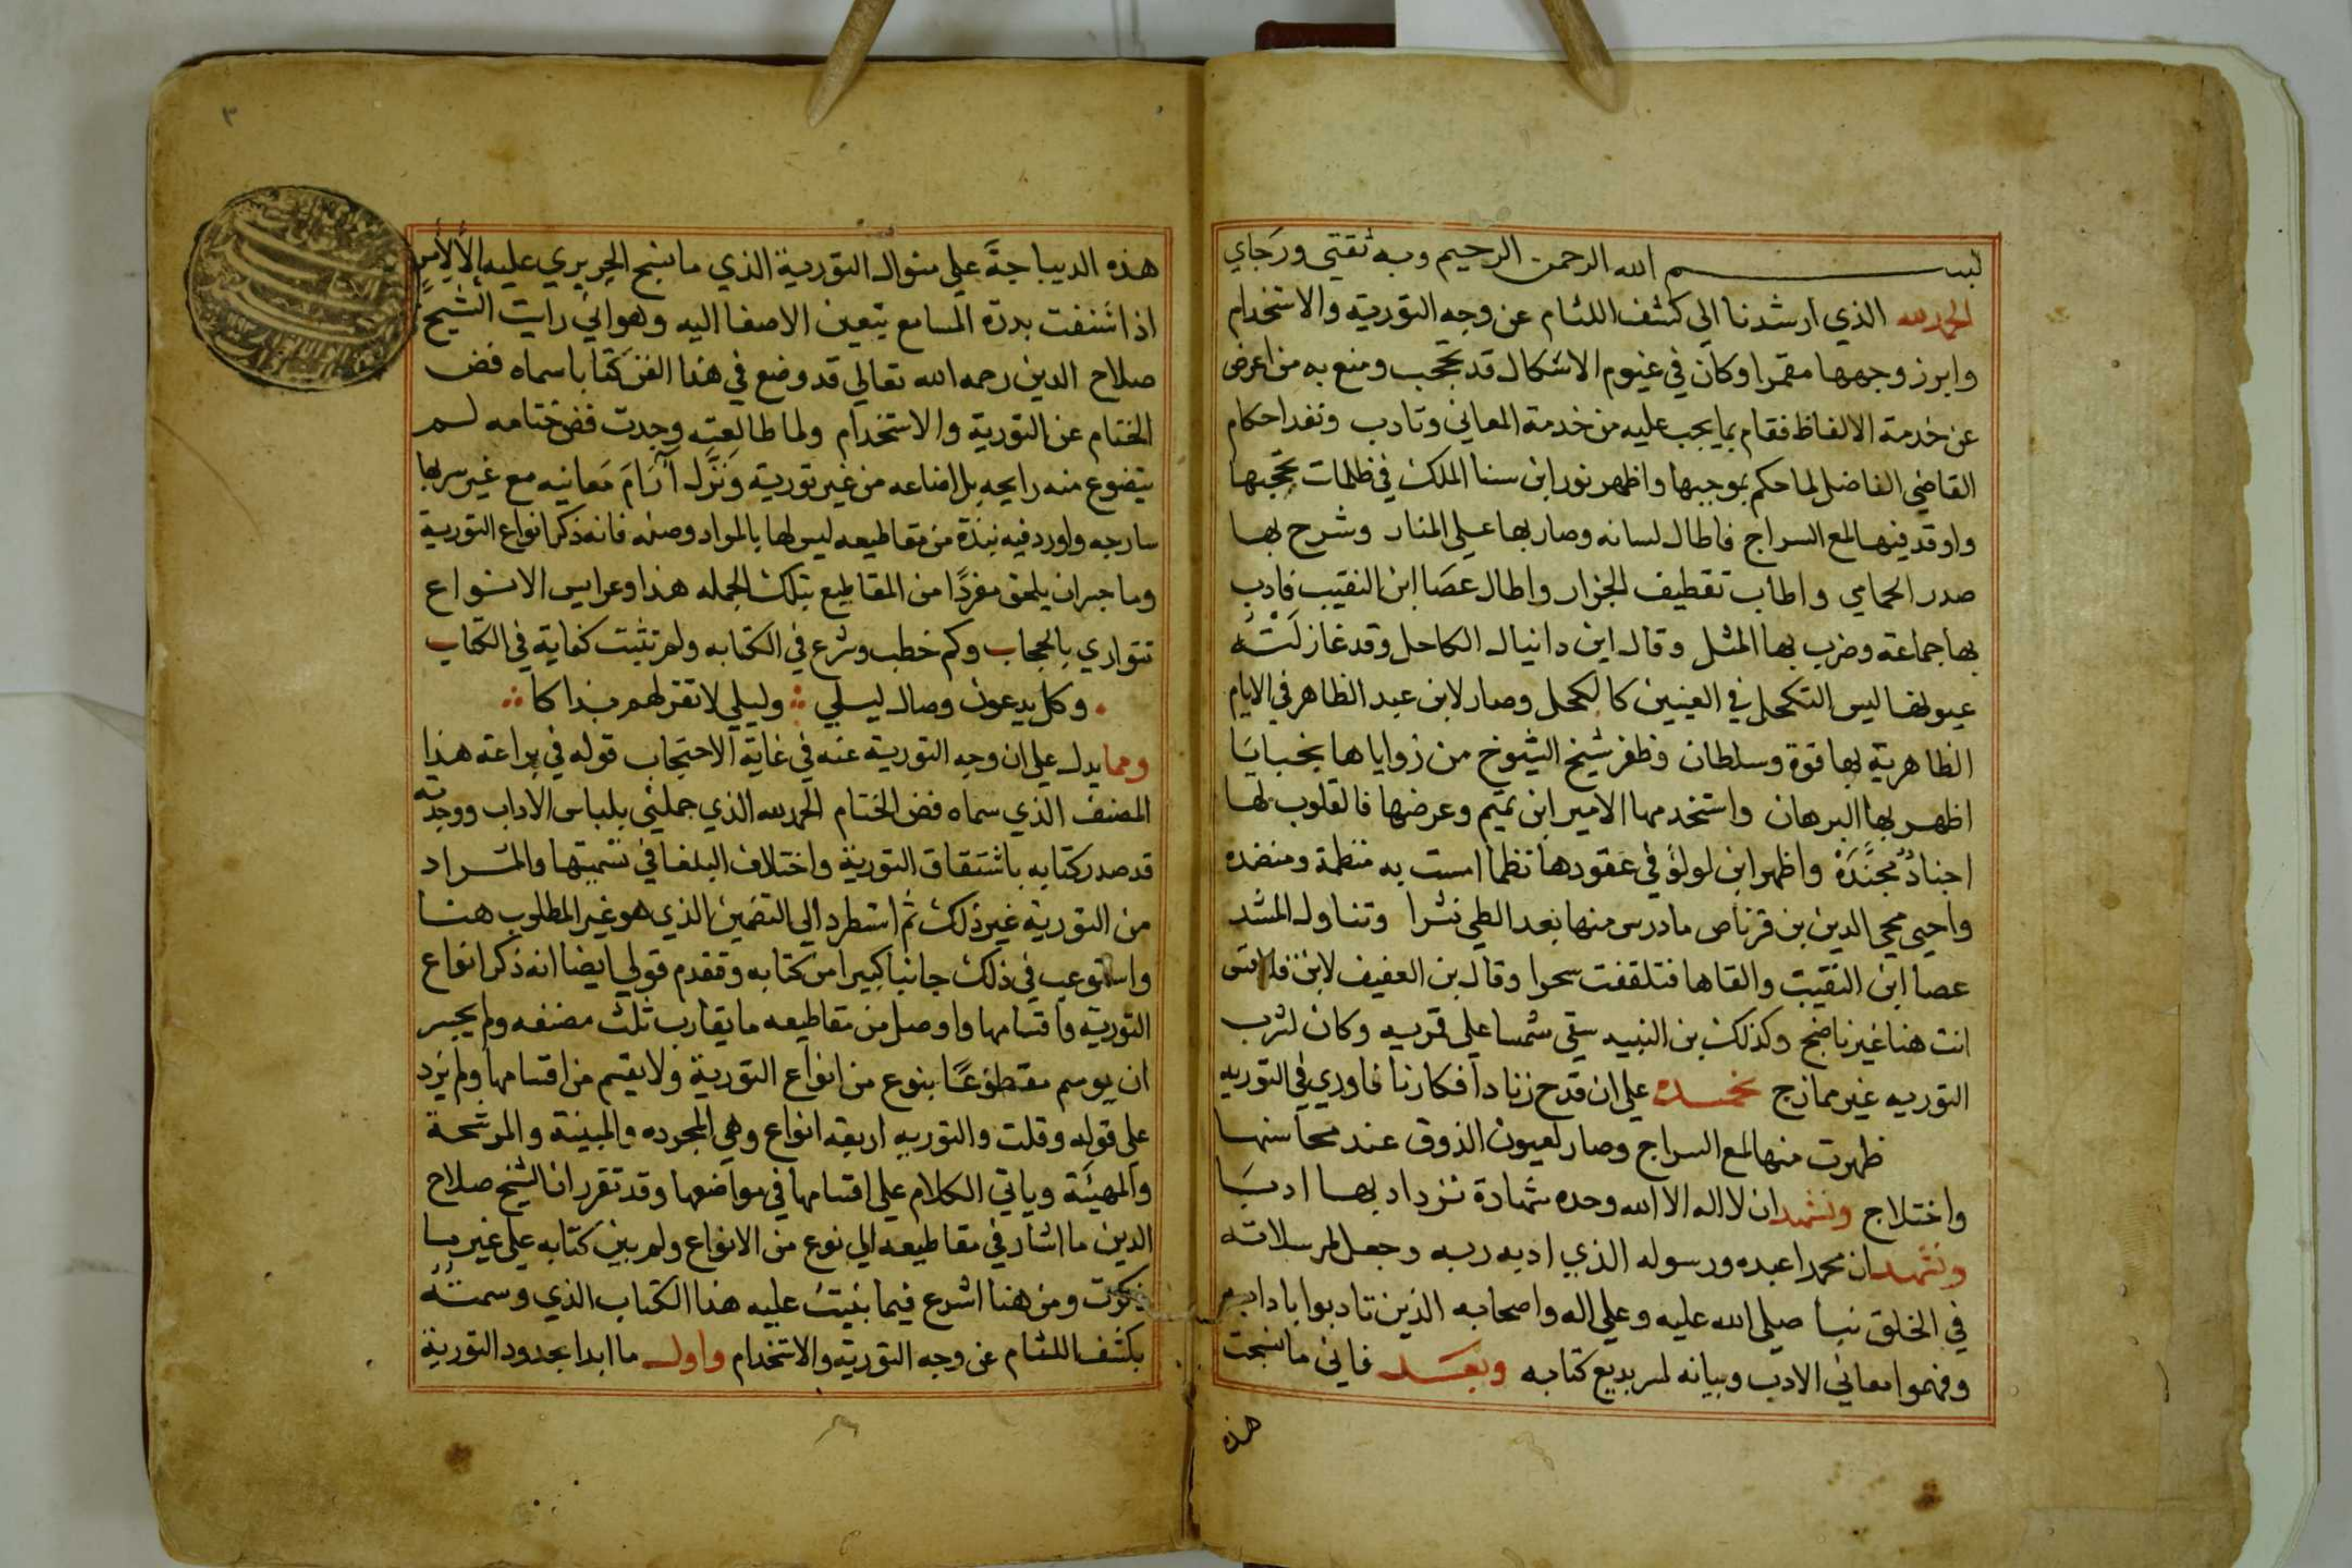 بسم الله الرحمن الرحيم وبه ثقتي ورجاي
الحمد لله الذي ارشدنا الي كشف اللثام عن وجه التورية والاستخدام
وابرز وجهها مقمرا وكان في غيوم الاشكال قد تحجب ومنع به من اعرض
عن خدمة الالفاظ فقام بما يجب عليه من خدمة المعاني وتادب ونفد احكام
القاضي الفاضل لما حكم بموجبها واظهر نور ابن سنا الملك في ظلمات تحجبها
واوقد فيها لمع السراج فاطال لسانه وصار بها علي المنار وشرح بها
صدر الحمامي واطاب تقطيف الجزار واطال عصا ابن النقيب فادب
بها جماعة وضرب بها المثل وقال ابن دانيال الكاحل وقد غازلته
عيونها ليس التكحل في العينين كالكحل وصار لابن عبد الظاهر في الايام
الظاهرية بها قوة وسلطان وظفر شيخ الشيوخ من زواياها بخبايا
اظهر بها البرهان واستخدمها الامير ابن تميم وعرضها فالقلوب لها
اجناد مجندة واظهر ابن لولؤ في عقودها نظما امست به منظمة ومنضده
واحيي محي الدين بن قرناص ما درس منها بعد الطي نشرا وتناول المشد
عصا ابن النقيب والقاها فتلقفت سحرا وقال بن العفيف لابن قلاقس
انت هنا غير ناضج وكذلك بن النبيه سقي شمسا علي قربه وكان لشرب
التوريه غير ممازج نحمده علي ان قدح زناد افكارنا فاوري في التوريه
ظهرت منها لمع السراج وصار لعيون الذوق عند محاسنها
واختلاج ونشهد ان لا اله الا الله وحده شهادة نزداد بها ادبا
ونشهد ان محمدا عبده ورسوله الذي ادبه ربه وجعل لمرسلاته
في الخلق نبا صلي الله عليه وعلي اله واصحابه الذين تادبوا بادابه
وفهموا معاني الادب وبيانه لسر بديع كتابه وبعد فاني ما نسجت
هذه
٣
هذه الديباجة علي منوال التورية الذي ما نسج الحريري عليه الا لامر
اذا شنفت بدره المسامع يتعين الاصغا اليه وهو اني رايت الشيخ
صلاح الدين رحمه الله تعالي قد وضع في هذا الفن كتابا سماه فض
الختام عن التورية والاستخدام ولما طالعته وجدت فض ختامه لم
يتضوع منه رايحه بل اضاعه من غير تورية ونزل ارام معانيه مع غير سربها
سارحه واورد فيه نبذة من مقاطيعه ليس لها بالمراد وصله فانه ذكر انواع التورية
وما جسر ان يلحق مفردا من المقاطيع بتلك الجمله هذا وعرايس الانواع
تتواري بالحجاب وكم خطب وشرع في الكتابه ولم تثبت كفاية في الكتاب
وكل يدعون وصال ليلي وليلي لا تقر لهم بذاكا
ومما يدل علي ان وجه التورية عنه في غاية الاحتجاب قوله في براعة هذا
المصنف الذي سماه فض الختام الحمد لله الذي جملني بلباس الاداب ووجدته
قد صدر كتابه باشتقاق التورية واختلاف البلغا في تسميتها والمراد
من التورية غير ذلك ثم استطرد الي التضمين الذي هو غير المطلوب هنا
واستوعب في ذلك جانبا كبيرا من كتابه وقد تقدم قولي ايضا انه ذكر انواع
التورية واقسامها واوصل من مقاطيعه ما يقارب ثلث مصنفه ولم يجسر
ان يوسم مقطوعا بنوع من انواع التورية ولا بقسم من اقسامها ولم يزد
علي قوله وقلت والتوريه اربعه انواع وهي المجرده والمبينة والمرشحة
والمهيئة وياتي الكلام علي اقسامها في مواضعها وقد تقرر ان الشيخ صلاح
الدين ما اشار في مقاطيعه الي نوع من الانواع ولم يبن كتابه علي غير ما
ذكرت ومن هنا اشرع فيما بنيت عليه هذا الكتاب الذي وسمته
بكشف اللثام عن وجه التورية والاستخدام واول ما ابدا بحدود التورية